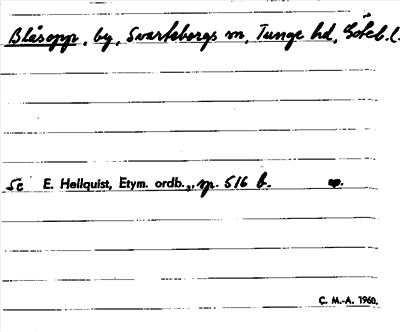 Blåsopp, by, Svarteborgs sn, Tunge hd, Göteb. l.
Se E. Hellquist, Etym. ordb., sp. 516 b.
C. M.-A. 1960.